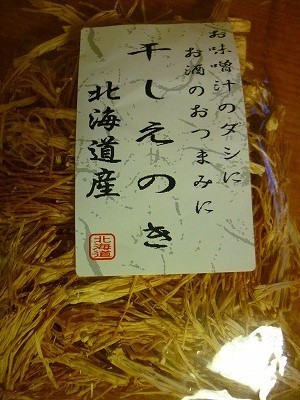 お味噌汁のダシに
お酒のおつまみに
干しえのき
北海道産
北海道